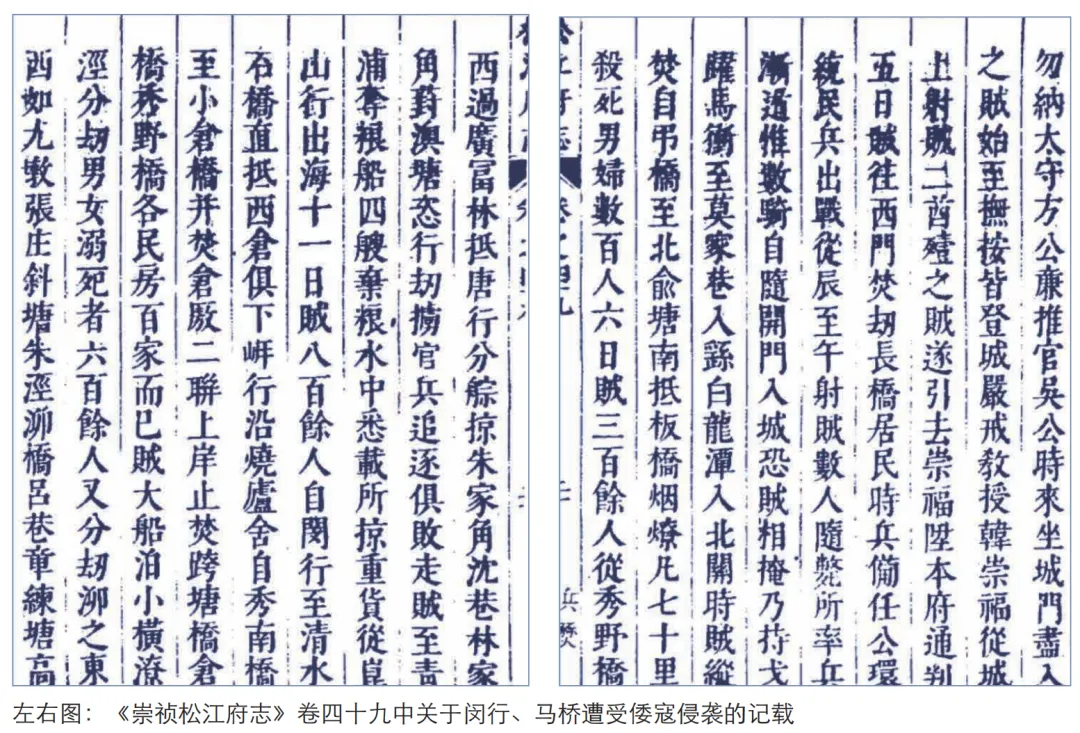 勿納太守方公廉推官吳公時來坐城門盡入
之賊始至撫按皆登城嚴戒敎授韓崇福從城
上射賊二酋殪之賊遂引去崇福陞本府通判
五日賊往西門焚刼長橋居民時兵備任公環
統民兵出戰從辰至午射賊數人隨斃所率兵
漸遁惟數騎自隨開門入城恐賊相掩乃持戈
躍馬衝至莫家巷入繇白龍潭入北關時賊縱
焚自弔橋至北俞塘南抵板橋烟燎凡七十里
殺死男婦數百人六日賊三百餘人從秀野橋
西過廣富林抵唐行分䑸掠朱家角沈巷林家
角葑澳塘恣行刼擄官兵追逐俱敗走賊至靑
浦奪粮船四艘棄粮水中悉載所掠重貨從崑
山行出海十一日賊八百餘人自閔行至清水
石橋直抵西倉俱下岸行沿燒廬舍自秀南橋
至小倉橋并焚倉厫二聯上岸止焚跨塘橋倉
橋秀野橋各民房百家而已賊大船泊小橫潦
涇分刼男女溺死者六百餘人又分刼泖之東
西如九墩張庄斜塘朱涇泖橋呂巷章練塘高
左右图：《崇祯松江府志》卷四十九中关于闵行、马桥遭受倭寇侵袭的记载